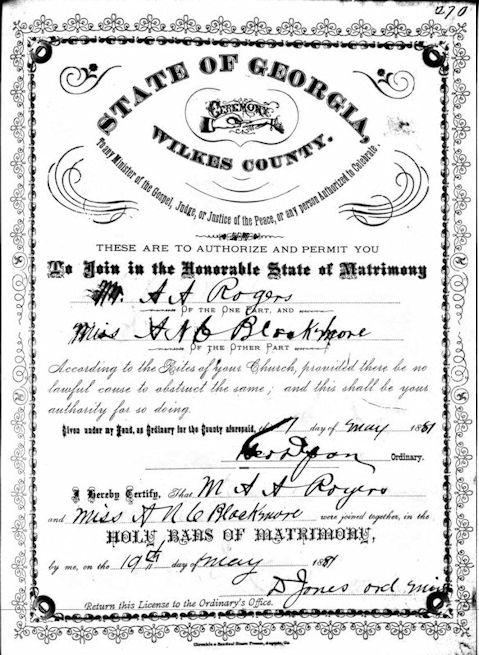 270
STATE OF GEORGIA,
CEREMONY
WILKES COUNTY.
To any Minister of the Gospel, Judge, or Justice of the Peace, or any person Authorized to Celebrate.
THESE ARE TO AUTHORIZE AND PERMIT YOU
To Join in the Honorable State of Matrimony
Mr. A A Rogers
OF THE ONE PART, AND
Miss A N C Blackmore
OF THE OTHER PART
According to the Rites of your Church, provided there be no
lawful cause to obstruct the same; and this shall be your
authority for so doing.
Given under my Hand, as Ordinary for the County aforesaid, 17 day of May 1881
Geo Dyson Ordinary.
I Hereby Certify, That M A A Rogers
and Miss A N C Blackmore were joined together, in the
HOLY BANS OF MATRIMONY,
by me, on the 19th day of May 1881
D Jones ord Min
(Return this License to the Ordinary's Office.